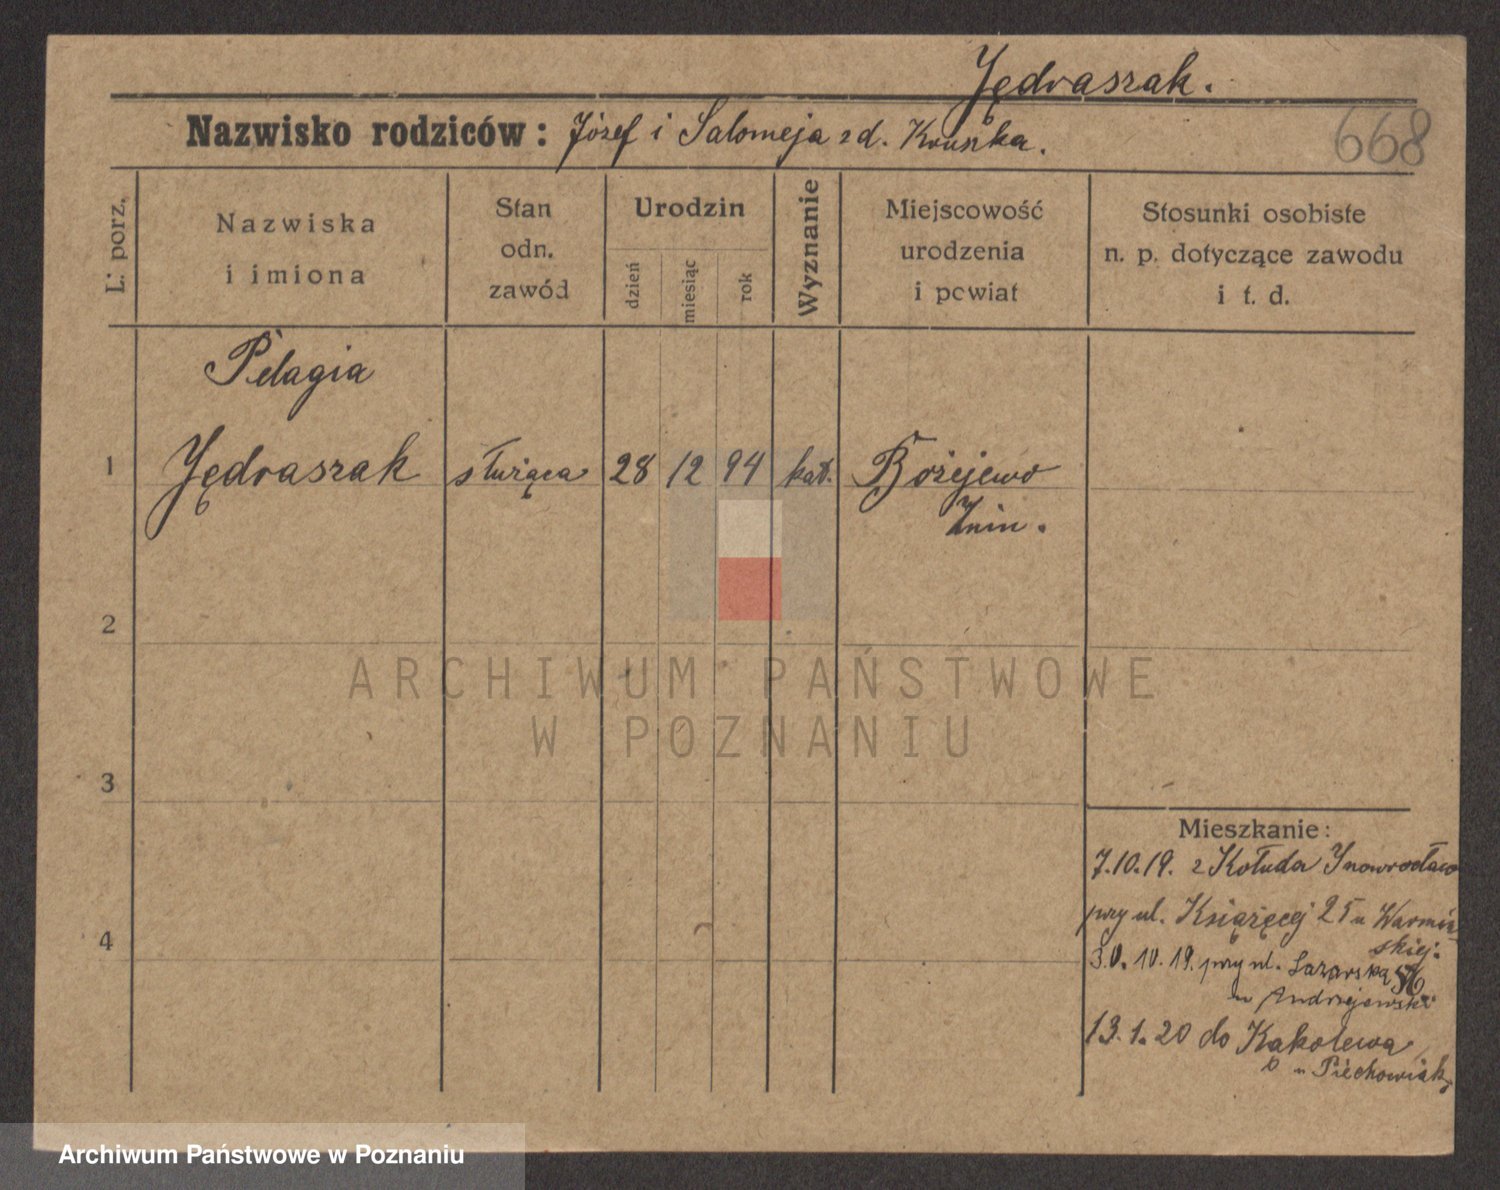 Jędraszak.
Nazwisko rodziców: Józef i Salomeja zd. Kruszka.
668
L. porz.
Nazwiska
i imiona
Stan
odn.
zawód
Urodzin
dzień
miesiąc
rok
Wyznanie
Miejscowość
urodzenia
i powiat
Stosunki osobiste
n. p. dotyczące zawodu
i t. d.
Pelagia
1 Jędraszak służąca 28 12 94 kat. Bożejewo
Żnin.
2
ARCHIWUM PAŃSTWOWE
W POZNANIU
3
Mieszkanie:
7.10.19. z Kołuda Inowrocław
przy ul. Książęcej 25 u Warmiń
skiej.
4
30.10.19. przy ul. Łazarska
u Andrzejewski
13.1.20 do Kąkolewa
u Piechowiak
Archiwum Państwowe w Poznaniu